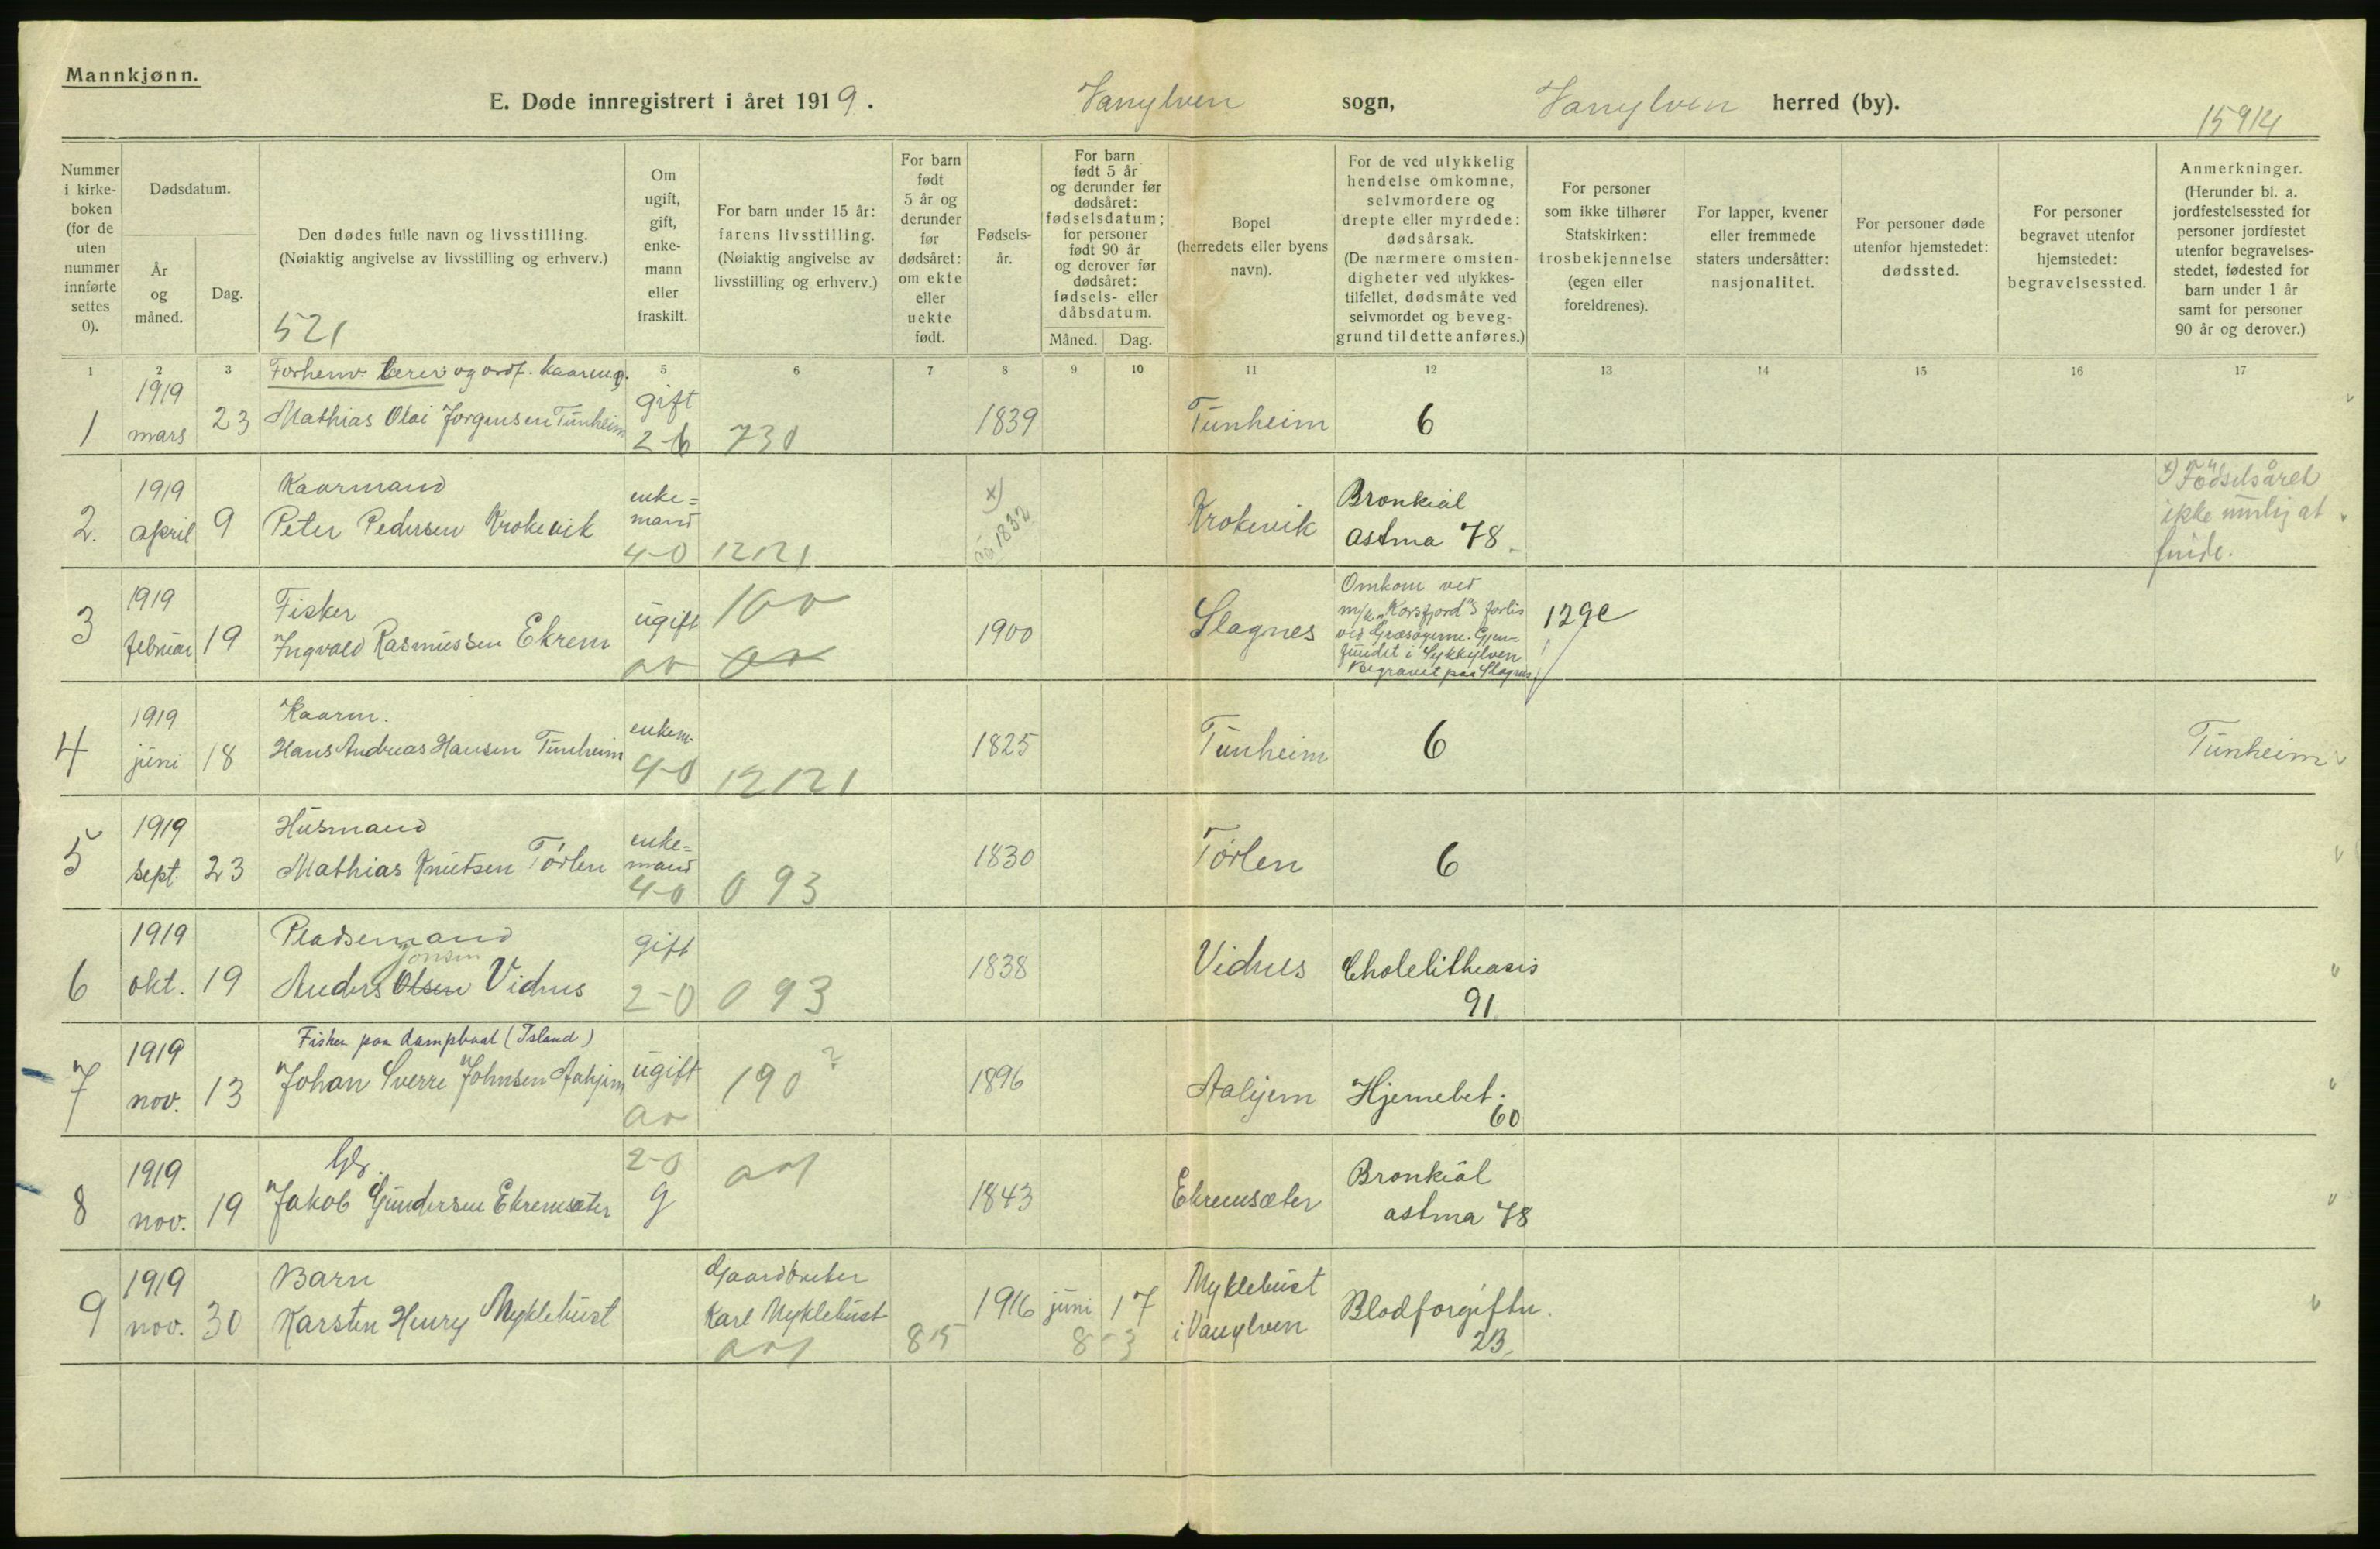 Mannkjønn.
E. Døde innregistrert i året 1919. Vanylven sogn, Vanylven herred (by).
15914
Nummer i kirkeboken (for de uten nummer innførte settes 0).
Dødsdatum.
År og måned.
Dag.
Den dødes fulle navn og livsstilling.
(Nøiaktig angivelse av livsstilling og erhverv.)
521
Om ugift, gift, enkemann eller fraskilt.
For barn under 15 år: farens livsstilling. (Nøiaktig angivelse av livsstilling og erhverv.)
For barn født 5 år og derunder før dødsåret: om ekte eller uekte født.
Fødselsår.
For barn født 5 år og derunder før dødsåret: fødselsdatum; for personer født 90 år og derover før dødsåret: fødsels- eller dåbsdatum.
Måned. Dag.
Bopel (herredets eller byens navn).
For de ved ulykkelig hendelse omkomne, selvmordere og drepte eller myrdede: dødsårsak. (De nærmere omstendigheter ved ulykkestilfellet, dødsmåte ved selvmordet og beveggrund til dette anføres.)
For personer som ikke tilhører Statskirken: trosbekjennelse (egen eller foreldrenes).
For lapper, kvener eller fremmede staters undersåtter: nasjonalitet.
For personer døde utenfor hjemstedet: dødssted.
For personer begravet utenfor hjemstedet: begravelsessted.
Anmerkninger. (Herunder bl. a. jordfestelsessted for personer jordfestet utenfor begravelsesstedet, fødested for barn under 1 år samt for personer 90 år og derover.)
1 2 3 5 6 7 8 9 10 11 12 13 14 15 16 17
Forhenv. lærer og ordf.
1 1919 mars 23 Mathias Olai Jørgensen Tunheim gift 2-6 730 1839 Tunheim 6
Kaarmand
2. 1919 april 9 Peter Pedersen Krokevik enke=mand 4-0 12121 x) 1832 Krokevik Bronkial astma 78 x) Fødselsåret ikke mulig at finde.
Fisker
3 1919 februar 19 Ingvald Rasmussen Ekrem ugift 1900 Slagnes Omkom ved m/k "Korsfjord"s forlis ved Græsøyerne. Gjenfundet i Sykkylven Begravet paa Slagnes 129e
Kaarm.
4 1919 juni 18 Hans Andreas Hansen Tunheim enkem. 4-0 12121 1825 Tunheim 6 Tunheim
Husmand
5 1919 sept. 23 Mathias Knutsen Tørlen enke=mand 4-0 093 1830 Tørlen 6
Pladsemand
Jonsen
6 1919 okt. 19 Anders Olsen Vidnes gift 2-0 093 1838 Vidnes Cholelitheasis 91
Fisker paa dampbaat (Island)
7 1919 nov. 13 Johan Sverre Johnsen Aahjem ugift 190 ? 1896 Aahjem Hjernebet. 60
Gbr.
8 1919 nov. 19 Jakob Gundersen Ekremsæter 2-0 g 1843 Ekremsæter Bronkial astma 78
Barn
9 1919 nov. 30 Karsten Henry Myklebust Gaardbruker Karl Myklebust 815 1916 juni 17 8-3 Myklebust i Vanylven Blodforgiftn. 23